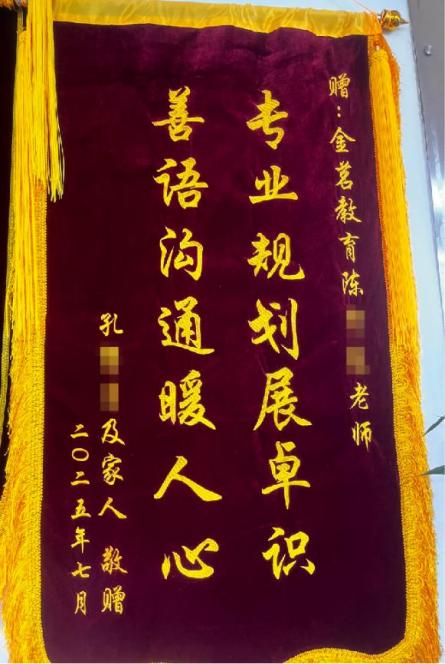 赠：金茗教育陈 老师
专业规划展卓识
善语沟通暖人心
孔 及家人 敬赠
二〇二五年七月